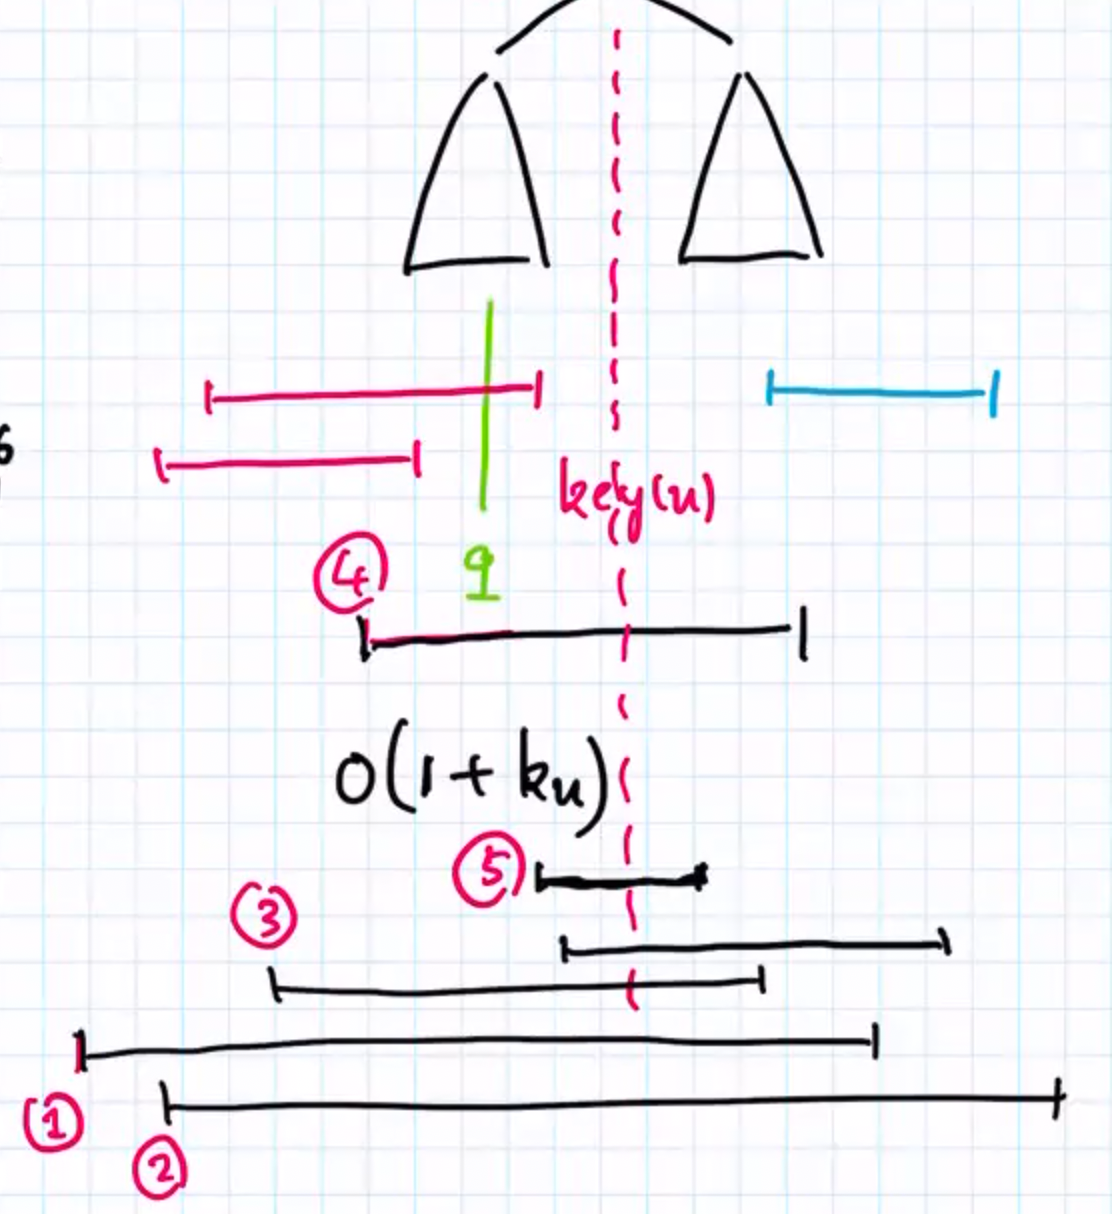 6
key(u)
4
q
O(1 + ku)
5
3
1
2